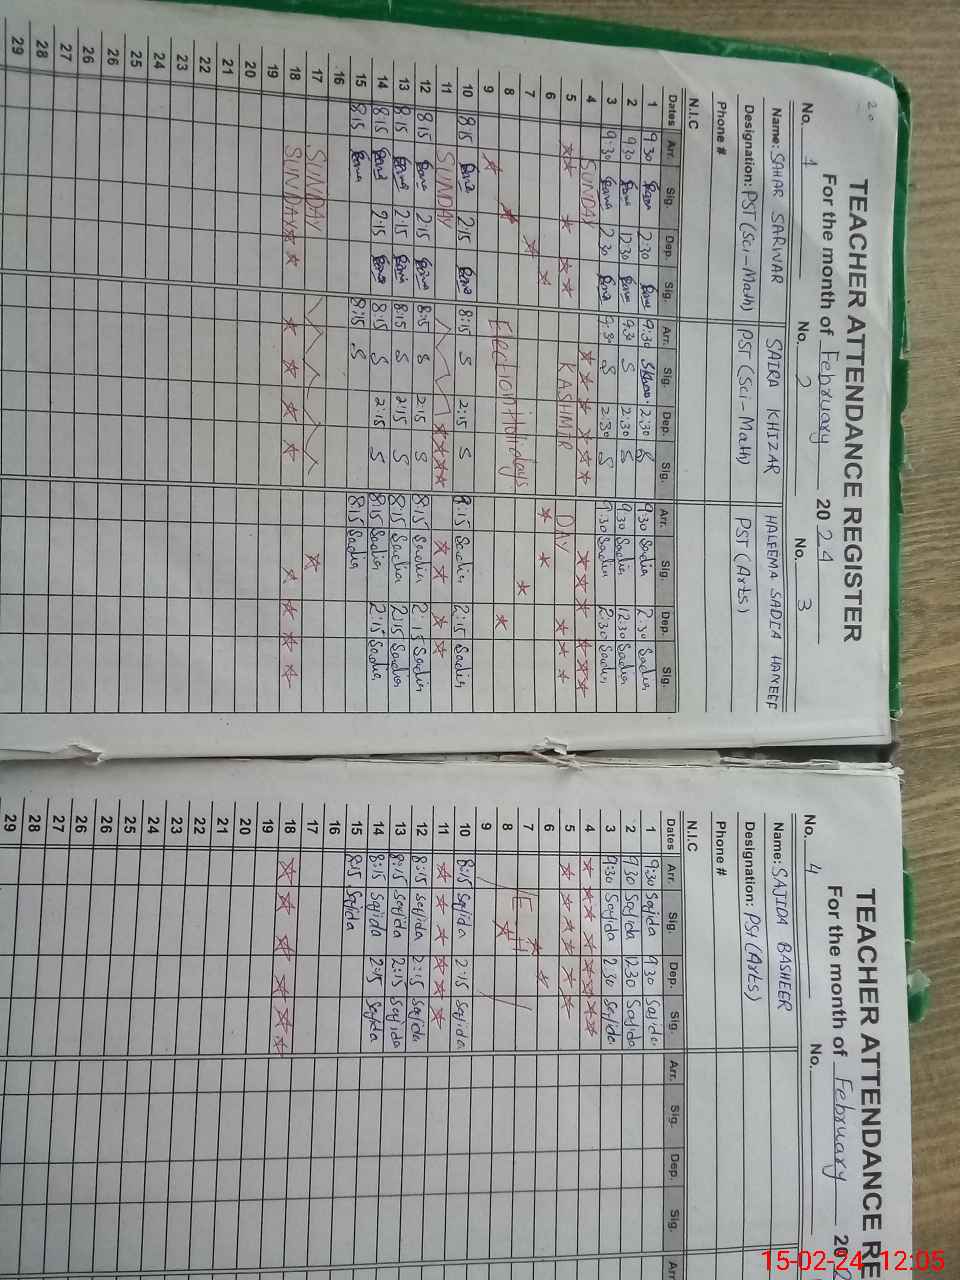 20
TEACHER ATTENDANCE REGISTER
For the month of February 2024
No. 1 No. 2 No. 3
Name: SAHAR SARWAR SAIRA KHIZAR HALEEMA SADIA HANEEF
Designation: PST (Sci-Math) PST (Sci-Math) PST (Arts)
Phone #
N.I.C
Dates Arr. Sig. Dep. Sig. Arr. Sig. Dep. Sig. Arr. Sig. Dep. Sig.
1 9:30 2:30 9:30 2:30 S 9:30 Sadia 2:30 Sadia
2 9:30 12:30 9:30 S 2:30 S 9:30 Sadia 12:30 Sadia
3 9:30 2:30 9:30 S 2:30 S 9:30 Sadia 2:30 Sadia
4 SUNDAY
5 KASHMIR DAY
6
7
8 Election Holidays
9
10 8:15 2:15 8:15 S 2:15 S 8:15 Sadia 2:15 Sadia
11 SUNDAY
12 8:15 2:15 8:15 S 2:15 S 8:15 Sadia 2:15 Sadia
13 8:15 2:15 8:15 S 2:15 S 8:15 Sadia 2:15 Sadia
14 8:15 2:15 8:15 S 2:15 S 8:15 Sadia 2:15 Sadia
15 8:15 8:15 S 8:15 Sadia
16
17 SUNDAY
18 SUNDAY
19
20
21
22
23
24
25
26
26
27
28
29
TEACHER ATTENDANCE RE
For the month of February 202
No. 4 No.
Name: SAJIDA BASHEER
Designation: PST (Arts)
Phone #
N.I.C
Dates Arr. Sig. Dep. Sig. Arr. Sig. Dep. Sig. Arr.
1 9:30 Sajida 9:30 Sajida
2 9:30 Sajida 12:30 Sajida
3 9:30 Sajida 2:30 Sajida
4
5
6
7
8 E H
9
10 8:15 Sajida 2:15 Sajida
11
12 8:15 Sajida 2:15 Sajida
13 8:15 Sajida 2:15 Sajida
14 8:15 Sajida 2:15 Sajida
15 8:15 Sajida
16
17
18
19
20
21
22
23
24
25
26
26
27
28
29
15-02-24 12:05